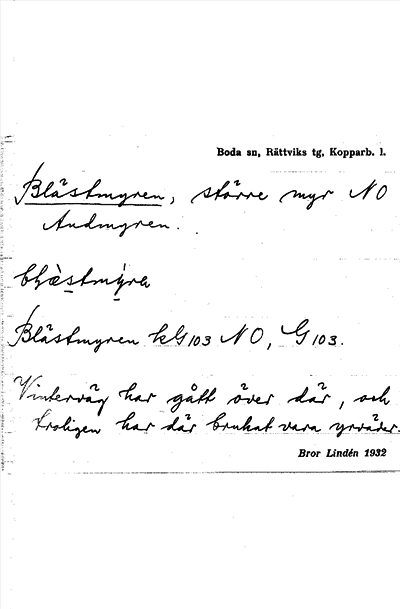 Boda sn, Rättviks tg, Kopparb. l.
Blästmyren, större myr NO
Andmyren.
Blästmyren kG103 NO, G103.
Vinterväg har gått över där, och
troligen har där brukat vara yrväder.
Bror Lindén 1932